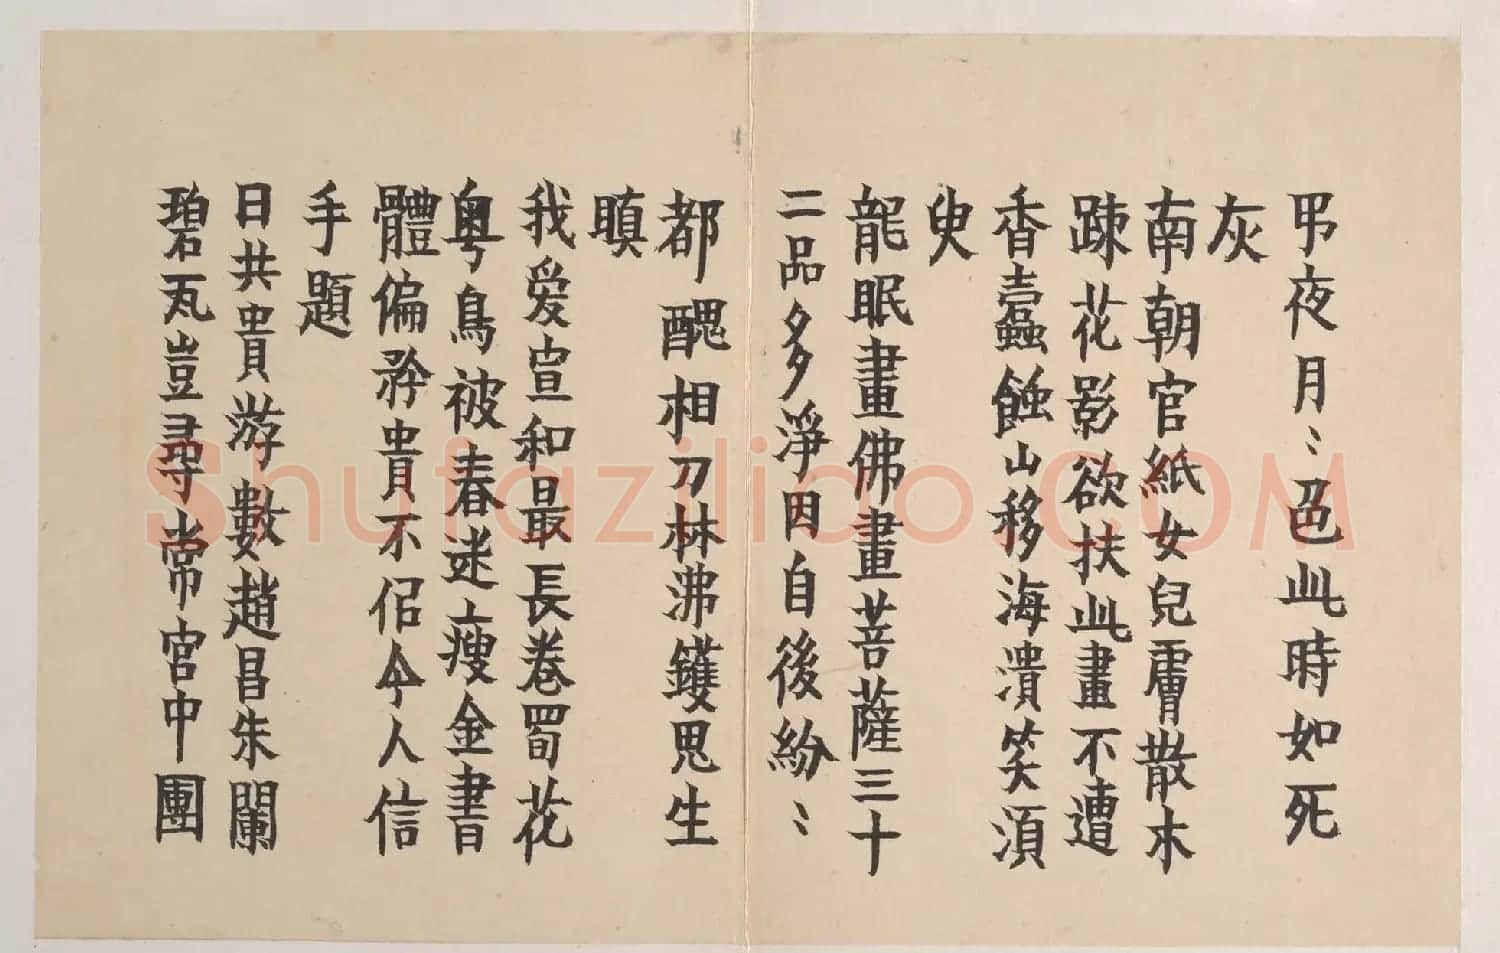 甼夜月〻色此時如死
灰
南朝官紙女兒膚散木
疎花影欲扶此畫不遭
香蠹蝕山移海潰笑湏
臾
龍眠畫佛畫菩薩三十
二品多淨因自後紛〻
都醜相刀林沸鑊思生
瞋
我愛宣和最長卷蜀花
粵鳥被春迷瘦金書
體偏矜貴不佀今人信
手題
日共貴游數趙昌朱闌
碧瓦豈尋常宮中團
Shufaziliao.COM